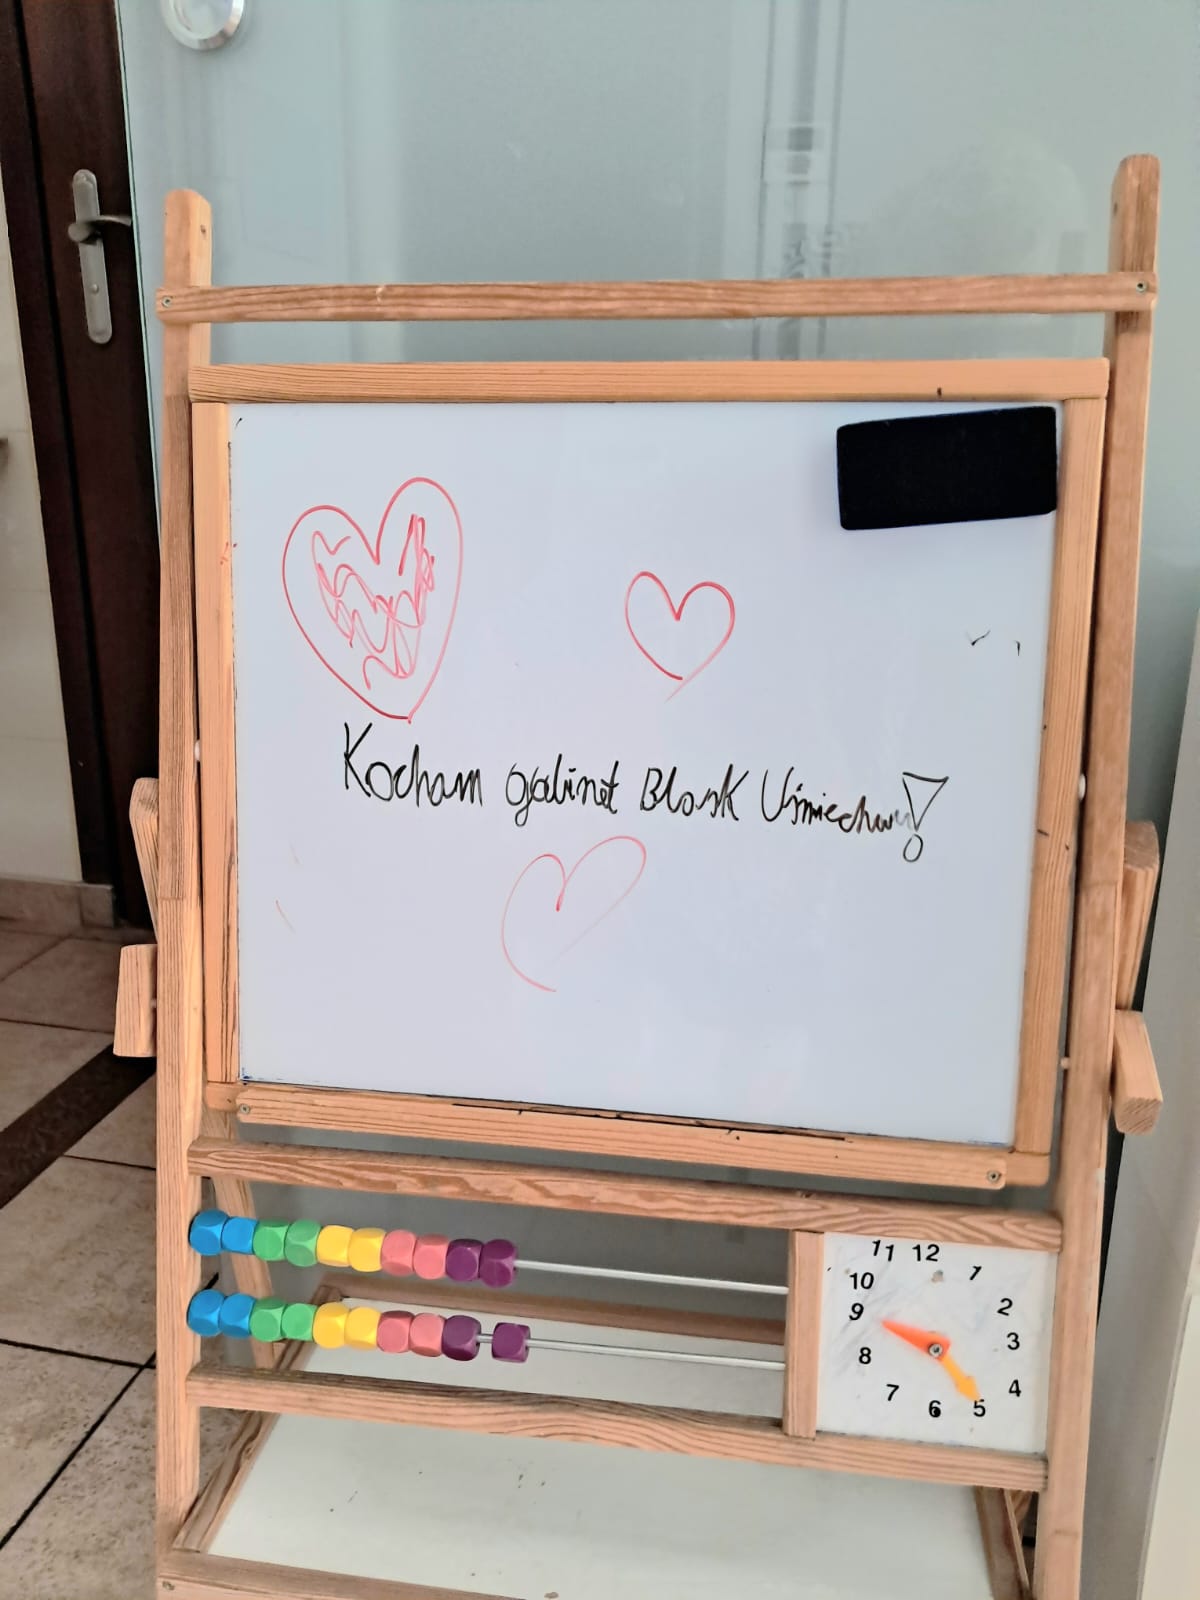 Kocham gabinet Blask Uśmiechu!
11 12 1
10 2
9 3
8 4
7 6 5